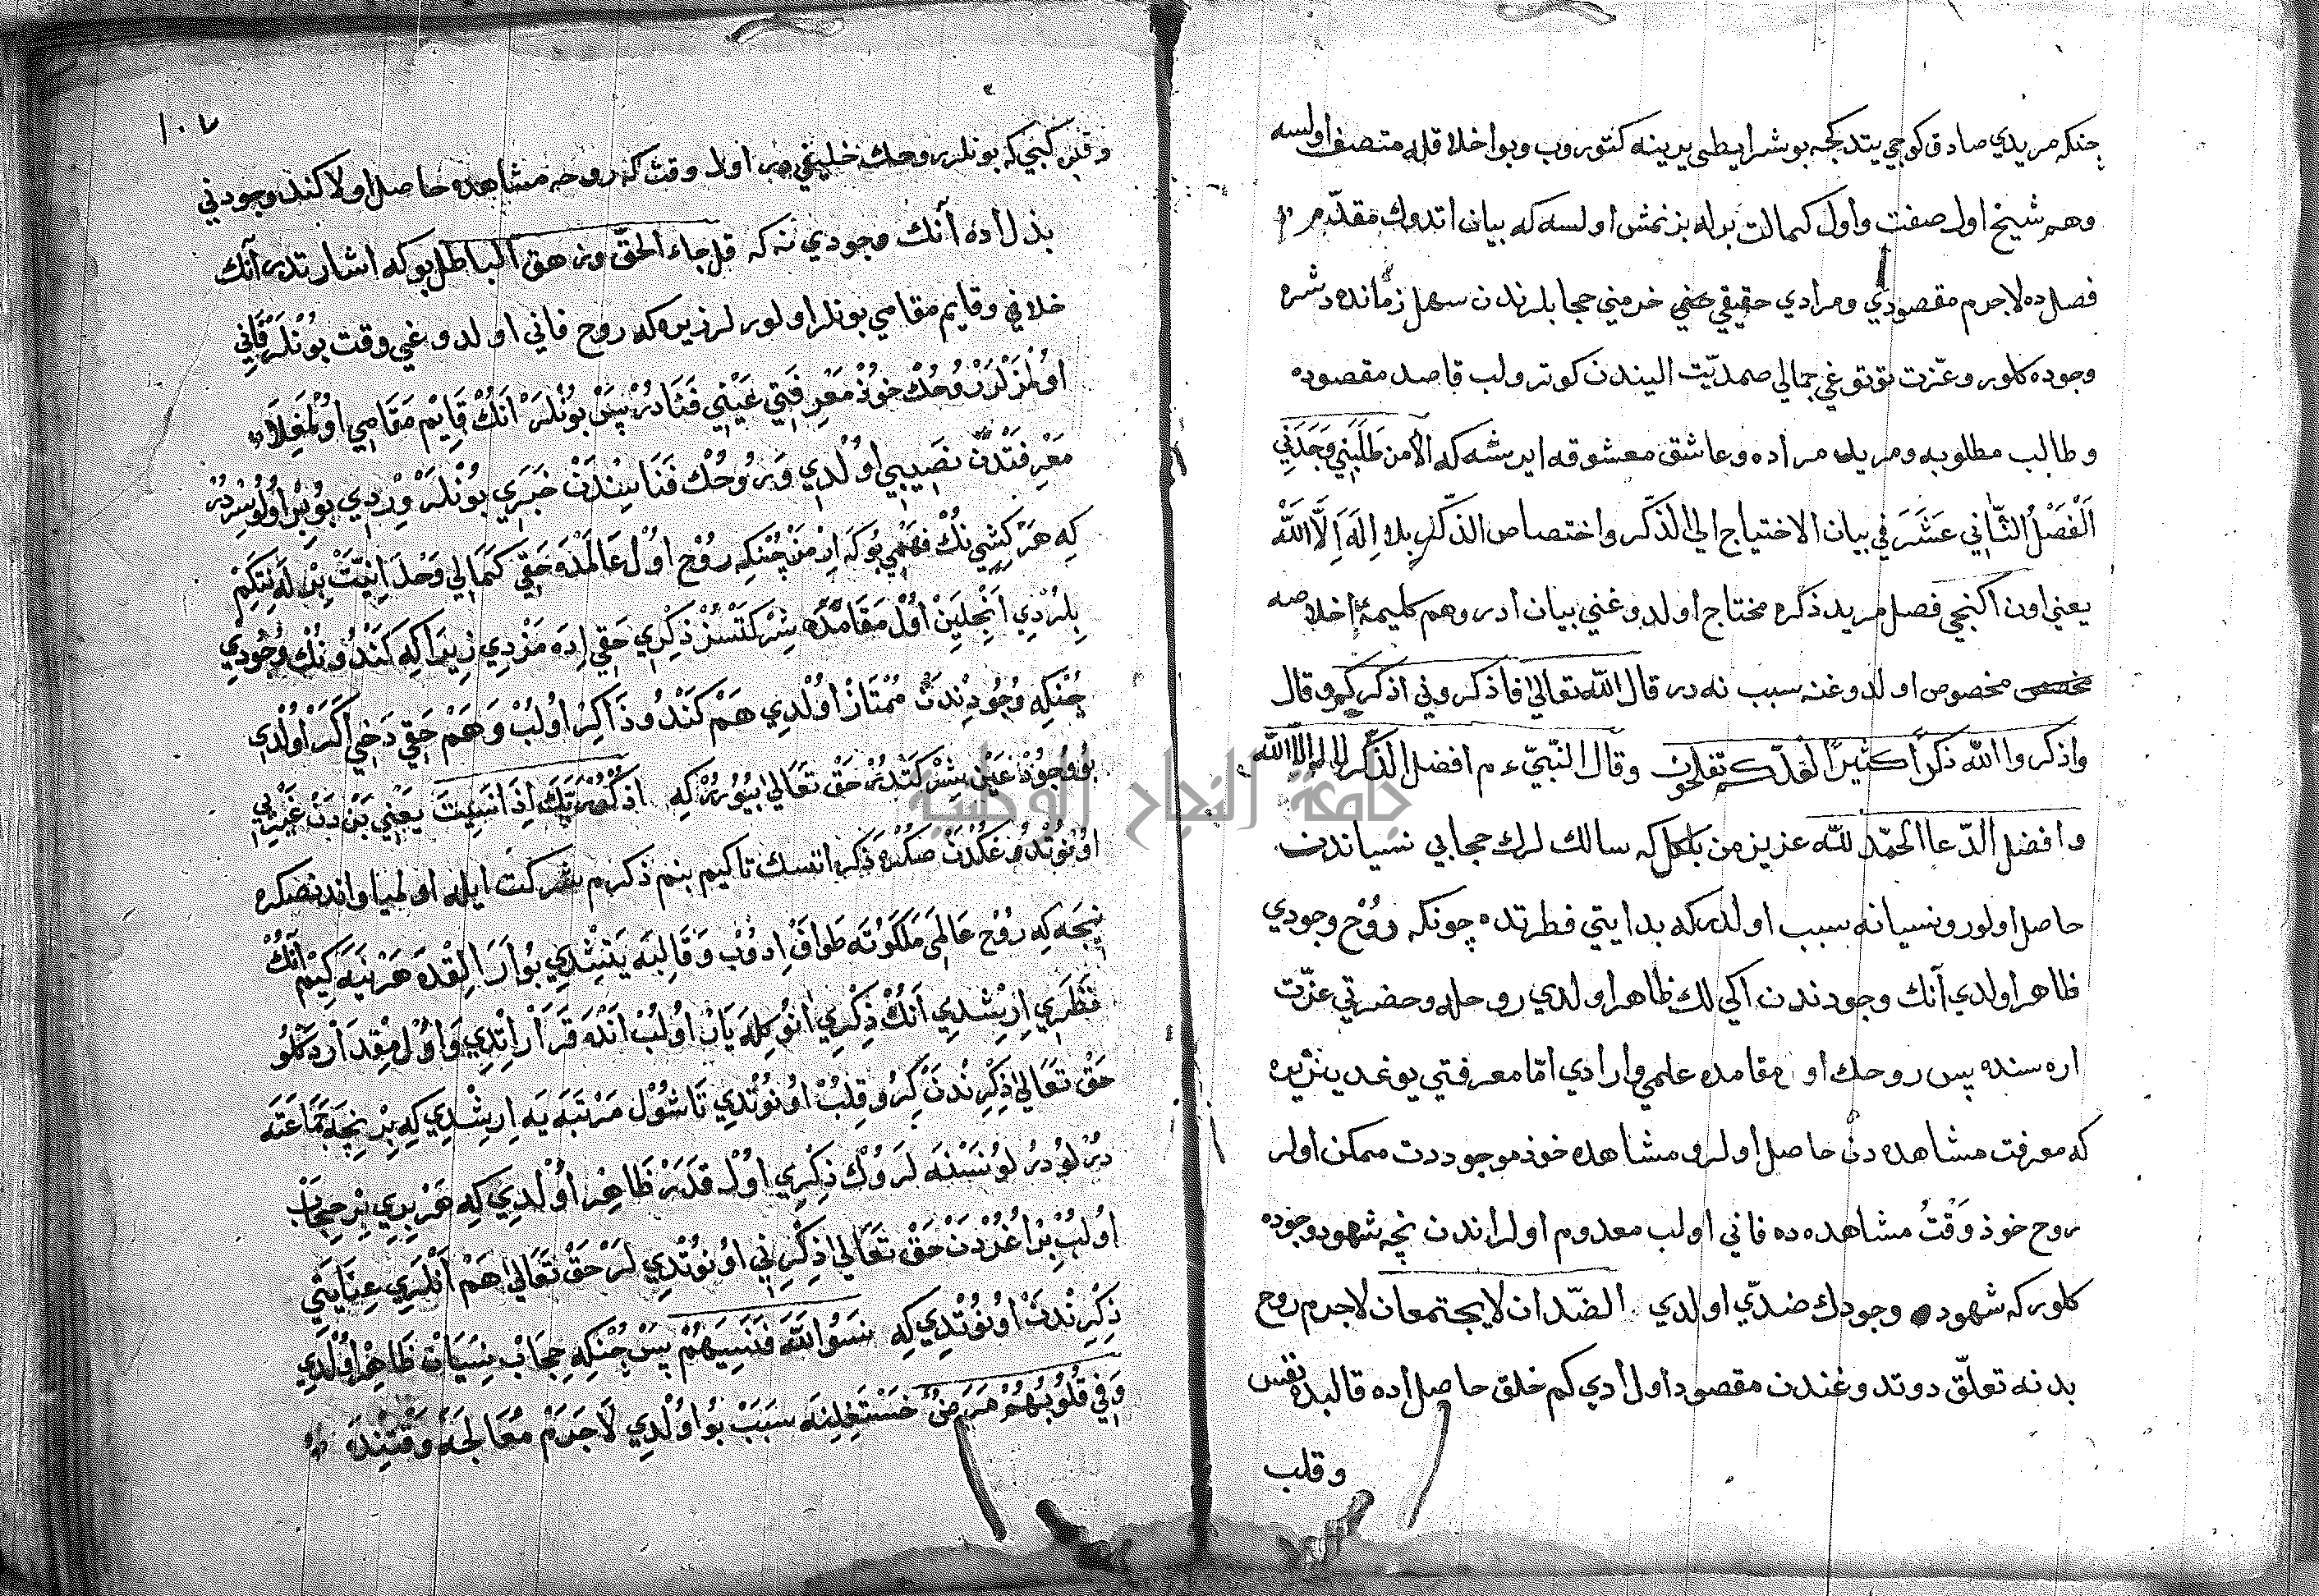 چنكه مريدي صادق كوجي يتدكجه بو شرايطى يرينه كتوروب وبو اخلاقله متصف اولسه
وهم شيخ اول صفت واول كمالت برله بزنمش اولسه كه بيان اتدوك مقدّم
فصلده لاجرم مقصودي ومرادي حقيقي خرمني حجابلرندن سهل زمانده دشره
وجوده كلور وعزت توتوغي جمالي صمديّت اليندن كوترولب قاصد مقصوده
وطالب مطلوبه ومريد مراده وعاشق معشوقه ايرشه كه الا من طَلَبَنِي وَجَدَنِي
اَلْفَصْلُ الثَّانِي عَشَرَ فِي بيان الاحتياج الي الذكر واختصاص الذّكر بلا اِلَهَ اِلَّا اللّٰهْ
يعني اون اكنجي فصل مريد ذكره محتاج اولدوغني بيان ادر وهم كليمۀ اخلاصه
مخصوص اولدوغنه سبب نه در قال الله تعالى فاذكروني اذكركم وقال
واذكروا الله ذكرًا كثيرًا لعلّكم تفلحون وقال النّبيّ ء م افضل الذّكر لا اله الا الله
وافضل الدّعا الحمد لله عزيز من بلكل كه سالك لرك حجابي نسياندن
حاصل اولور ونسيانه سبب اولدر كه بدايتي فطرتده چونكه رُوْح وجودي
ظاهر اولدي آنك وجودندن اكي لك ظاهر اولدي روحله وحضرتي عزّت
اره سنده پس روحك اول مقامده علمي وارادي امّا معرفتي يوغدي نيزيره
كه معرفت مشاهده دن حاصل اولر ومشاهده خوذ موجوددت ممكن اولر
روح خوذ وَقْتُ مشاهده ده فاني اولب معدوم اولر اندن نچه شهود وجوده
كلور كه شهود وجودك ضدّي اولدي الضّدان لا يجتمعان لاجرم روح
بدنه تعلّق دوتدوغندن مقصود اول ادي كم خلق حاصل اده قالبده نفس
وقلب
١٠٧
وقلب كبي كه بونلر روحك خليفي در اول وقت كه روحه مشاهده حاصل اولا كند وجودني
بذل اده آنك وجودي نه كه قل جاء الحقّ وزهق الباطل بو كه اشارتدر آنك
خلافي وقايم مقامي بونلر اولورلر زيره كه روح فاني اولدوغي وقت بُوْنْلَرْ فَانِي
اوُلْمَزْلَرْ رُوحُكْ خوُذْ مَعْرِفَتِي عَيْنِي فَنَادُرْ پَسْ بوُنْلَرْ اَنُكْ قَايِمْ مَقَامِي اوُلْمَغِلَا
مَعْرِفَتْدَنْ نَصِيبِي اوُلْدِي وَرُوحُكْ فَنَاسِندَنْ خَبَرِي بوُنْلَرْ وِرْدِي بُو بِرْ اوُلُو سِرْدُرْ
كِه هَرْ كِشِي نُكْ فَهْمِي بوُكَه اِرْمَزْ چُنْكِه رُوْحْ اوُلْ عَالَمْدَه حَقِي كَمَالِي وَحْدَانِيَّتْ بِرلَه نِتَكِمْ
بِلُرْدِي اَنْجِلَيِنْ اوُلْ مَقَامْدَه شِرْكَتْسُزْ ذِكْرِي حَقِي اِدَه مَزْدِي زِيرَا كِه كَنْدُونُكْ وُجُودِي
چُنْكِه وُجُودِنْدَنْ مُمْتَازْ اوُلْدِي هَمْ كَنْدُو ذَاكِرْ اوُلُبْ وَهَمْ حَقِي دَخِي اَكَرْ اوُلْدِي
بُو وُجُوذْ عَيْنِ شِرْكَتْدُرْ حَقْ تَعَالَى بُيُوُرُرْ كِه اذْكُرْ رَبَّكَ اِذَا نَسِيتَ يَعْنِي بَنْ دَنْ غَيْرِي
اوُنُوتْدُوغُكْدَنْ صَكْرَه ذكر اتسك تاكيم بنم ذكرم شركت ايله اولميا واندنصكره
نِيجَه كِه رُوْحْ عَالَمِي مَلَكوُتَه طَوَافْ اِدُوبْ وَقَالِبَه يَتِشْدِي بُو اَرَالِقْدَه هَرْ نَيَه كِيْم اَنُكْ
نَظَرِي اِرِشْدِي اَنُكْ ذِكْرِي انُوكِلَه يَارْ اوُلُبْ اَنْدَه قَرَارْ اِتْدِي وَاوُلْ مِقْدَارْدَكْلُو
حَقْ تَعَالَى ذِكْرِنْدَنْ كِرُو قِلُبْ اوُنُوُتْدِي تَا شُوْل مَرْتَبَه يَه اِرِشْدِي كِه بِرْ نِيجَه جَمَاعَتَه
دُرْلُو دُرْلُو نَسْنَه لَرُوكْ ذِكْرِي اوُلْ قَدَرْ ظَاهِرْ اوُلْدِي كِه هَرْ بِرِي بِرْ حِجَابْ
اوُلُبْ بِرْ اوُغُرْدَنْ حَقْ تَعَالَى ذِكْرِنِي اوُنُوتْدِي لَرْ حَقْ تَعَالَى هَمْ اَنْلَرِي عِنَايَتِي
ذِكْرِنْدَنْ اوُنُوتْدِي كِه نَسُوا اللّٰهَ فَنَسِيَهُمْ پَسْ چُنْكِه حِجَابْ نِسْيَانْ ظَاهِرْ اوُلْدِي
وَفِي قُلُوبُهُمْ مَرَضٌ خَسْتَه لِغِنَه سَبَبْ بُو اوُلْدِي لَاجَرَمْ مُعَالَجَه وَقْتِنْدَه
جامعة النجاح الوطنية